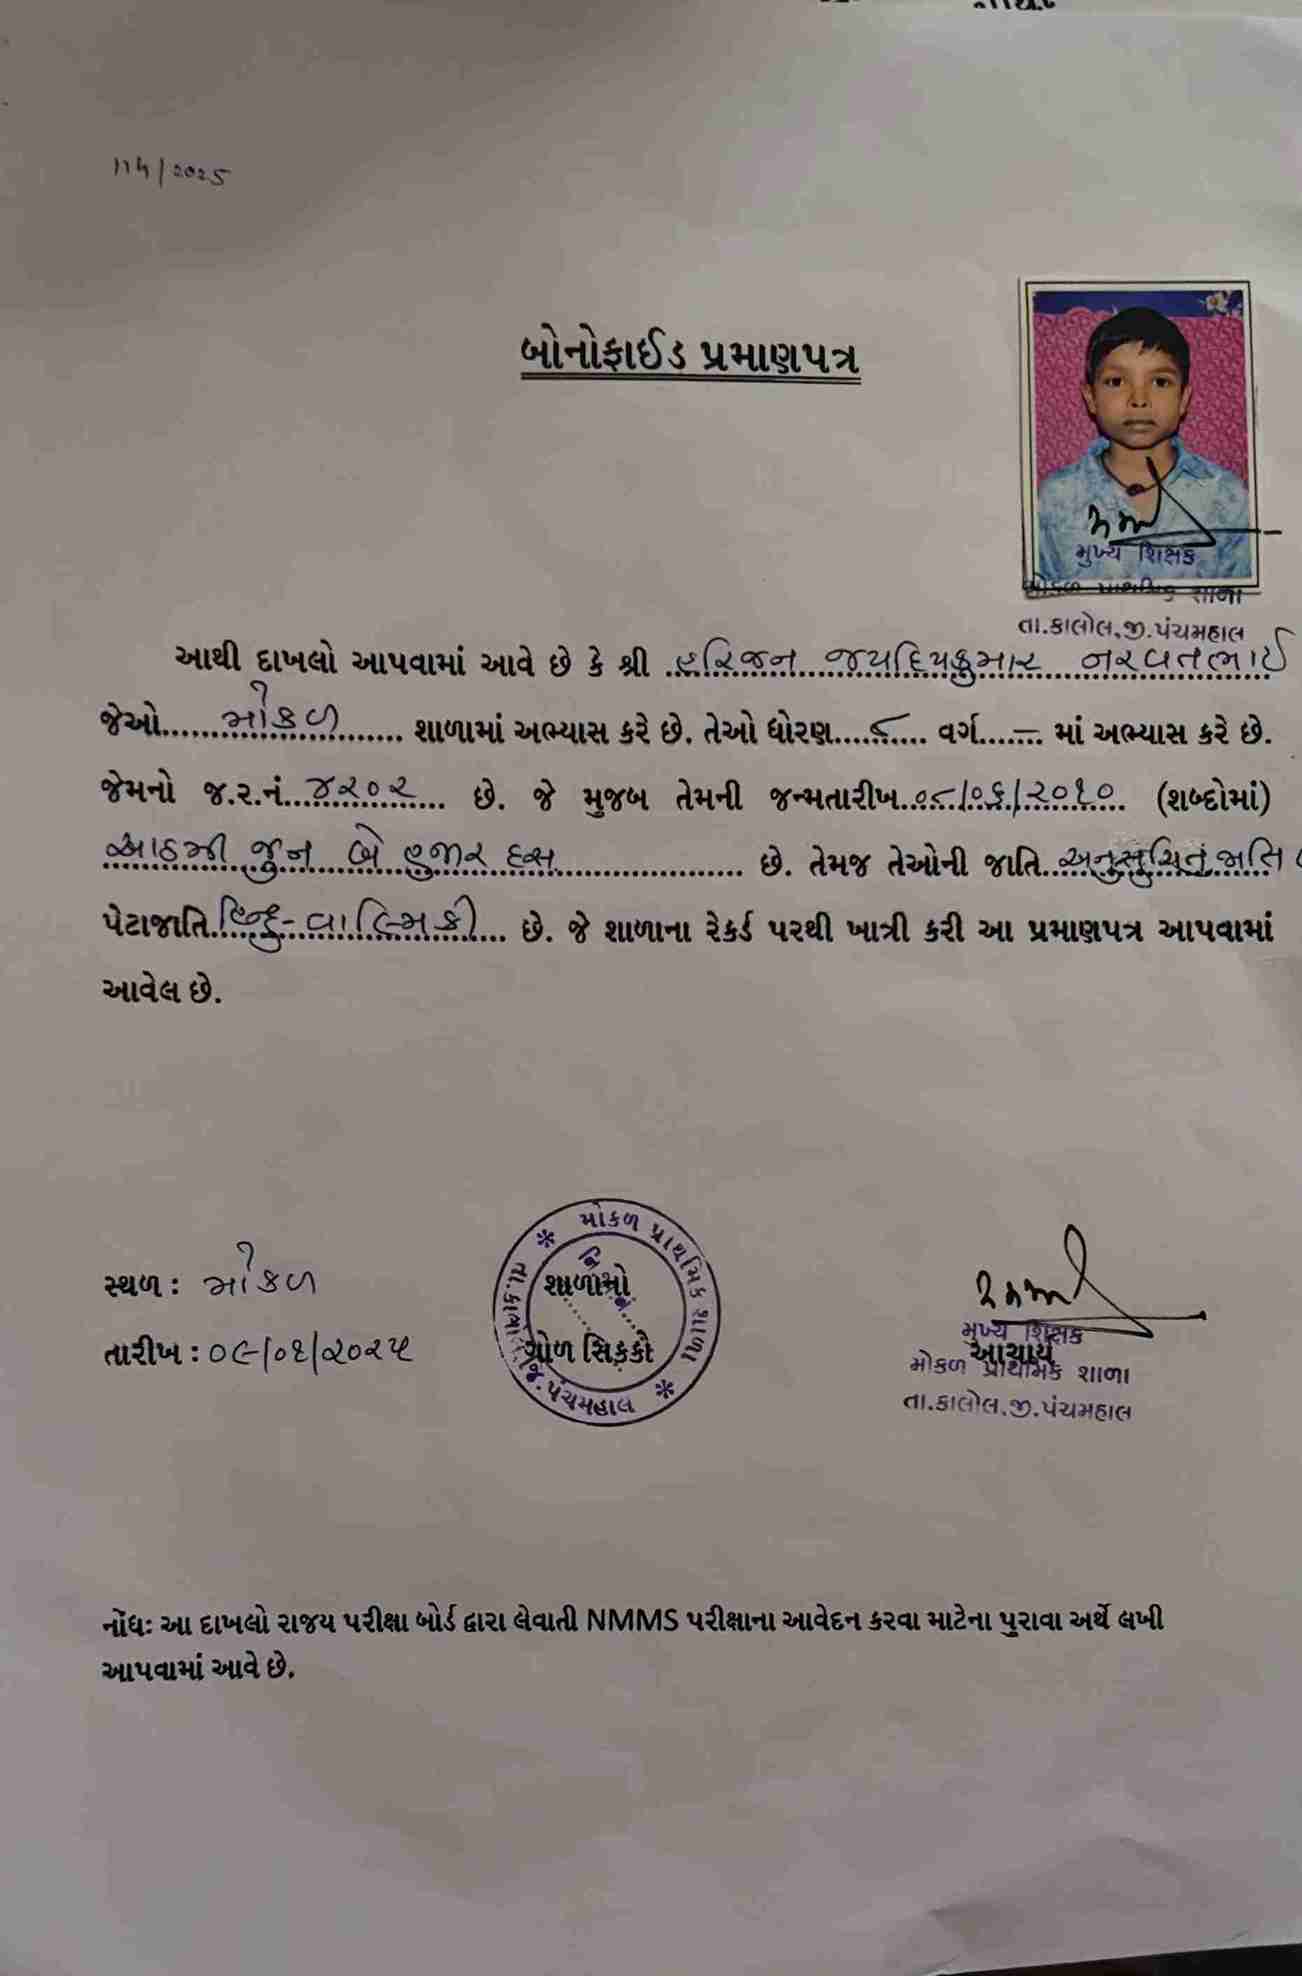 બોનોફાઈડ પ્રમાણપત્ર
મુખ્ય શિક્ષક
મોકળ પ્રાથમિક શાળા
તા.કાલોલ,જી.પંચમહાલ
આથી દાખલો આપવામાં આવે છે કે શ્રી ..હરિજન જયદિપકુમાર નરવતભાઈ
જેઓ.....મોકળ..... શાળામાં અભ્યાસ કરે છે. તેઓ ધોરણ....૮.... વર્ગ...–... માં અભ્યાસ કરે છે.
જેમનો જ.ર.નં...૪૨૦૨... છે. જે મુજબ તેમની જન્મતારીખ..૦૮/૦૬/૨૦૧૦.. (શબ્દોમાં)
આઠમી જુન બે હજાર દસ.................. છે. તેમજ તેઓની જાતિ...અનુસુચિત જાતિ
પેટાજાતિ હિન્દુ-વાલ્મિકી... છે. જે શાળાના રેકર્ડ પરથી ખાત્રી કરી આ પ્રમાણપત્ર આપવામાં
આવેલ છે.
સ્થળ : મોકળ
તારીખ : ૦૯/૦૧/૨૦૨૫
મોકળ પ્રાથમિક શાળા
તા.કાલોલ જી.પંચમહાલ
શાળાનો
ગોળ સિક્કો
મુખ્ય શિક્ષક
આચાર્ય
મોકળ પ્રાથમિક શાળા
તા.કાલોલ,જી.પંચમહાલ
નોંધઃ આ દાખલો રાજય પરીક્ષા બોર્ડ દ્વારા લેવાતી NMMS પરીક્ષાના આવેદન કરવા માટેના પુરાવા અર્થે લખી
આપવામાં આવે છે.